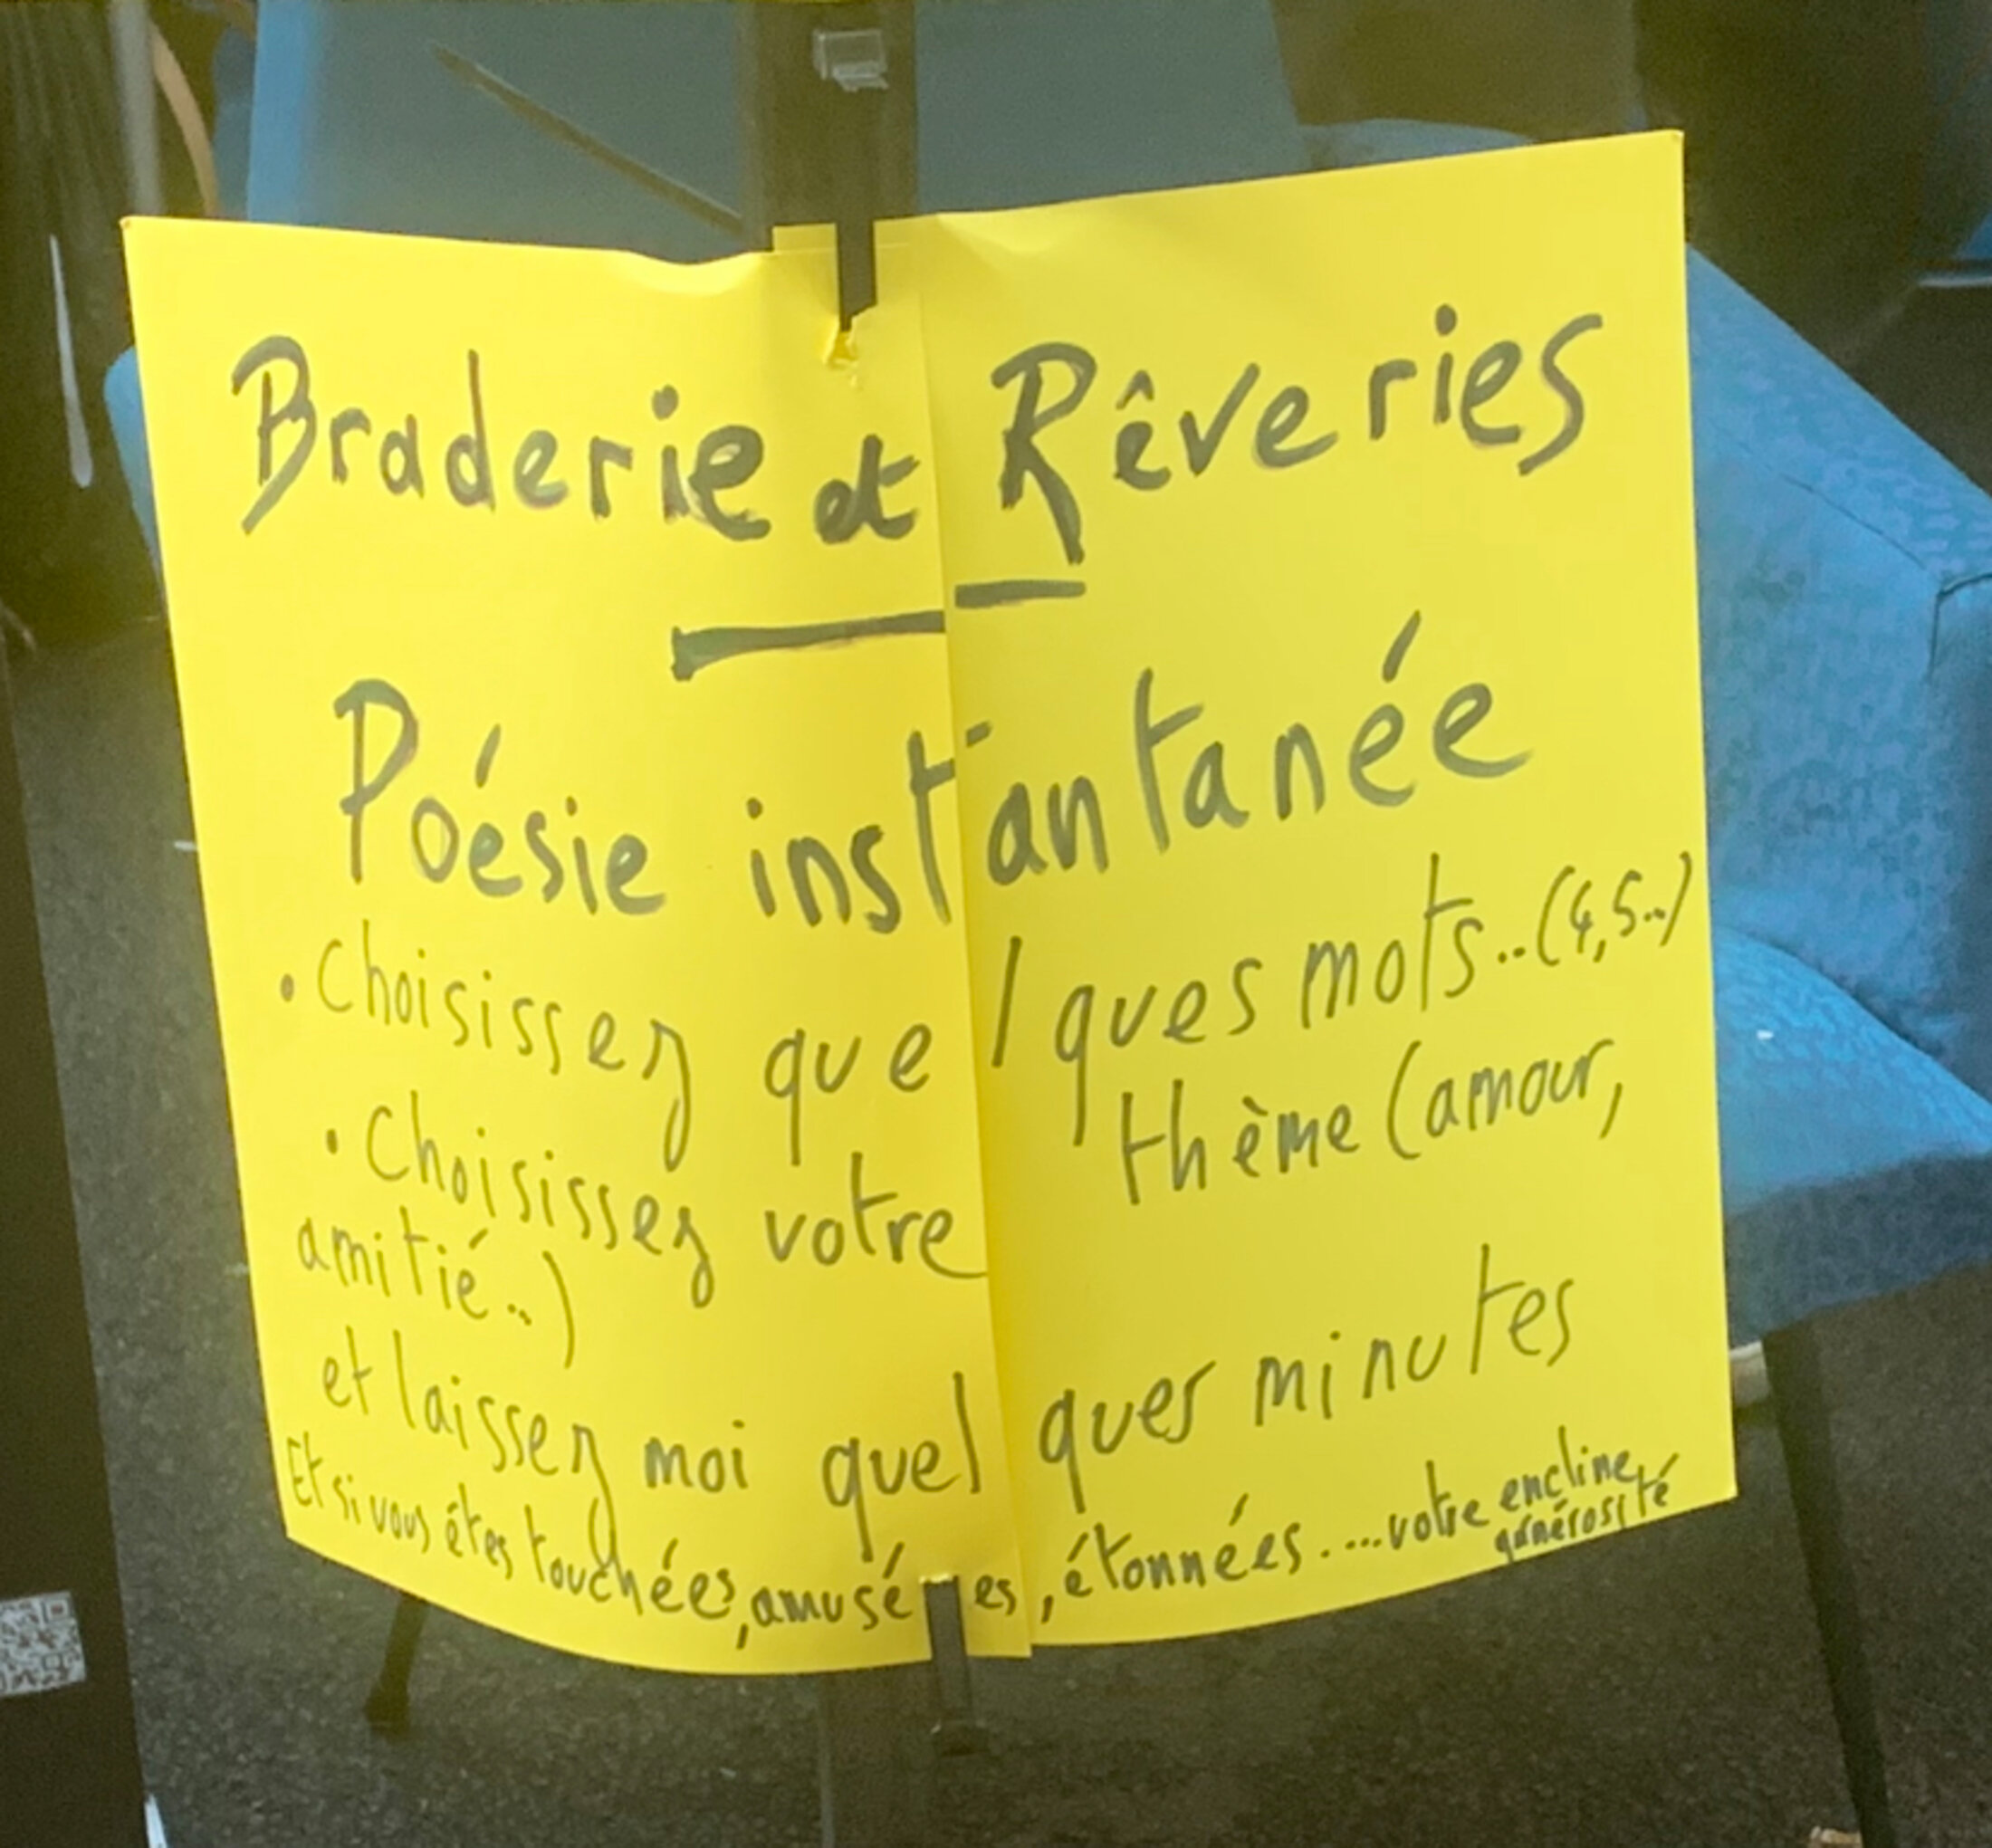 Braderie et Rêveries
Poésie instantanée
• Choisissez quelques mots..(4,5..)
• Choisissez votre thème (amour,
amitié..)
et laissez moi quelques minutes
Et si vous êtes touchées, amusées, étonnées.... votre encline
générosité